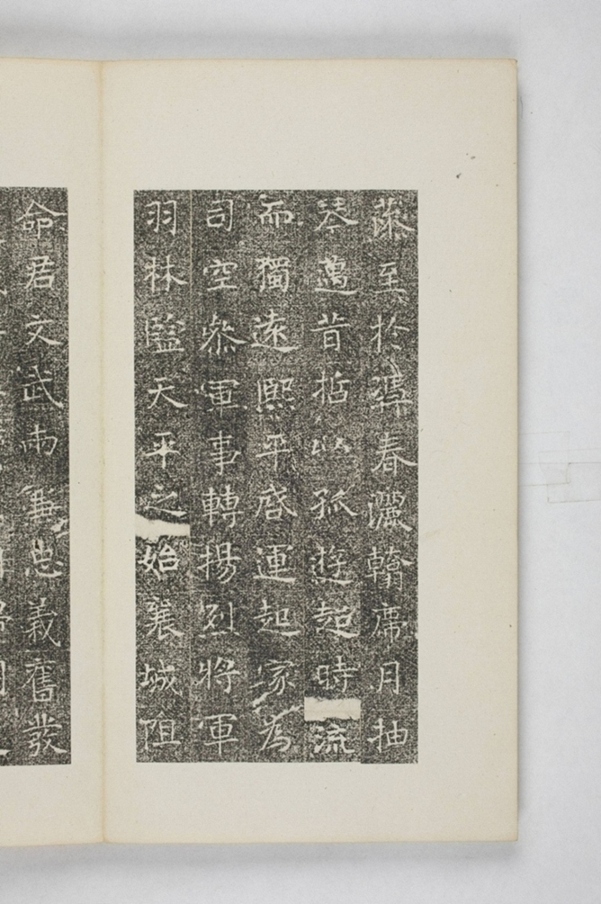 藻至於春灑翰席月抽
琴邁昔哲以孤遊超時流
而獨遠熙平啓運起家爲
司空叅軍事轉揚烈將軍
羽林監天平之始襄城阻
命君文武兩兼忠義奮發